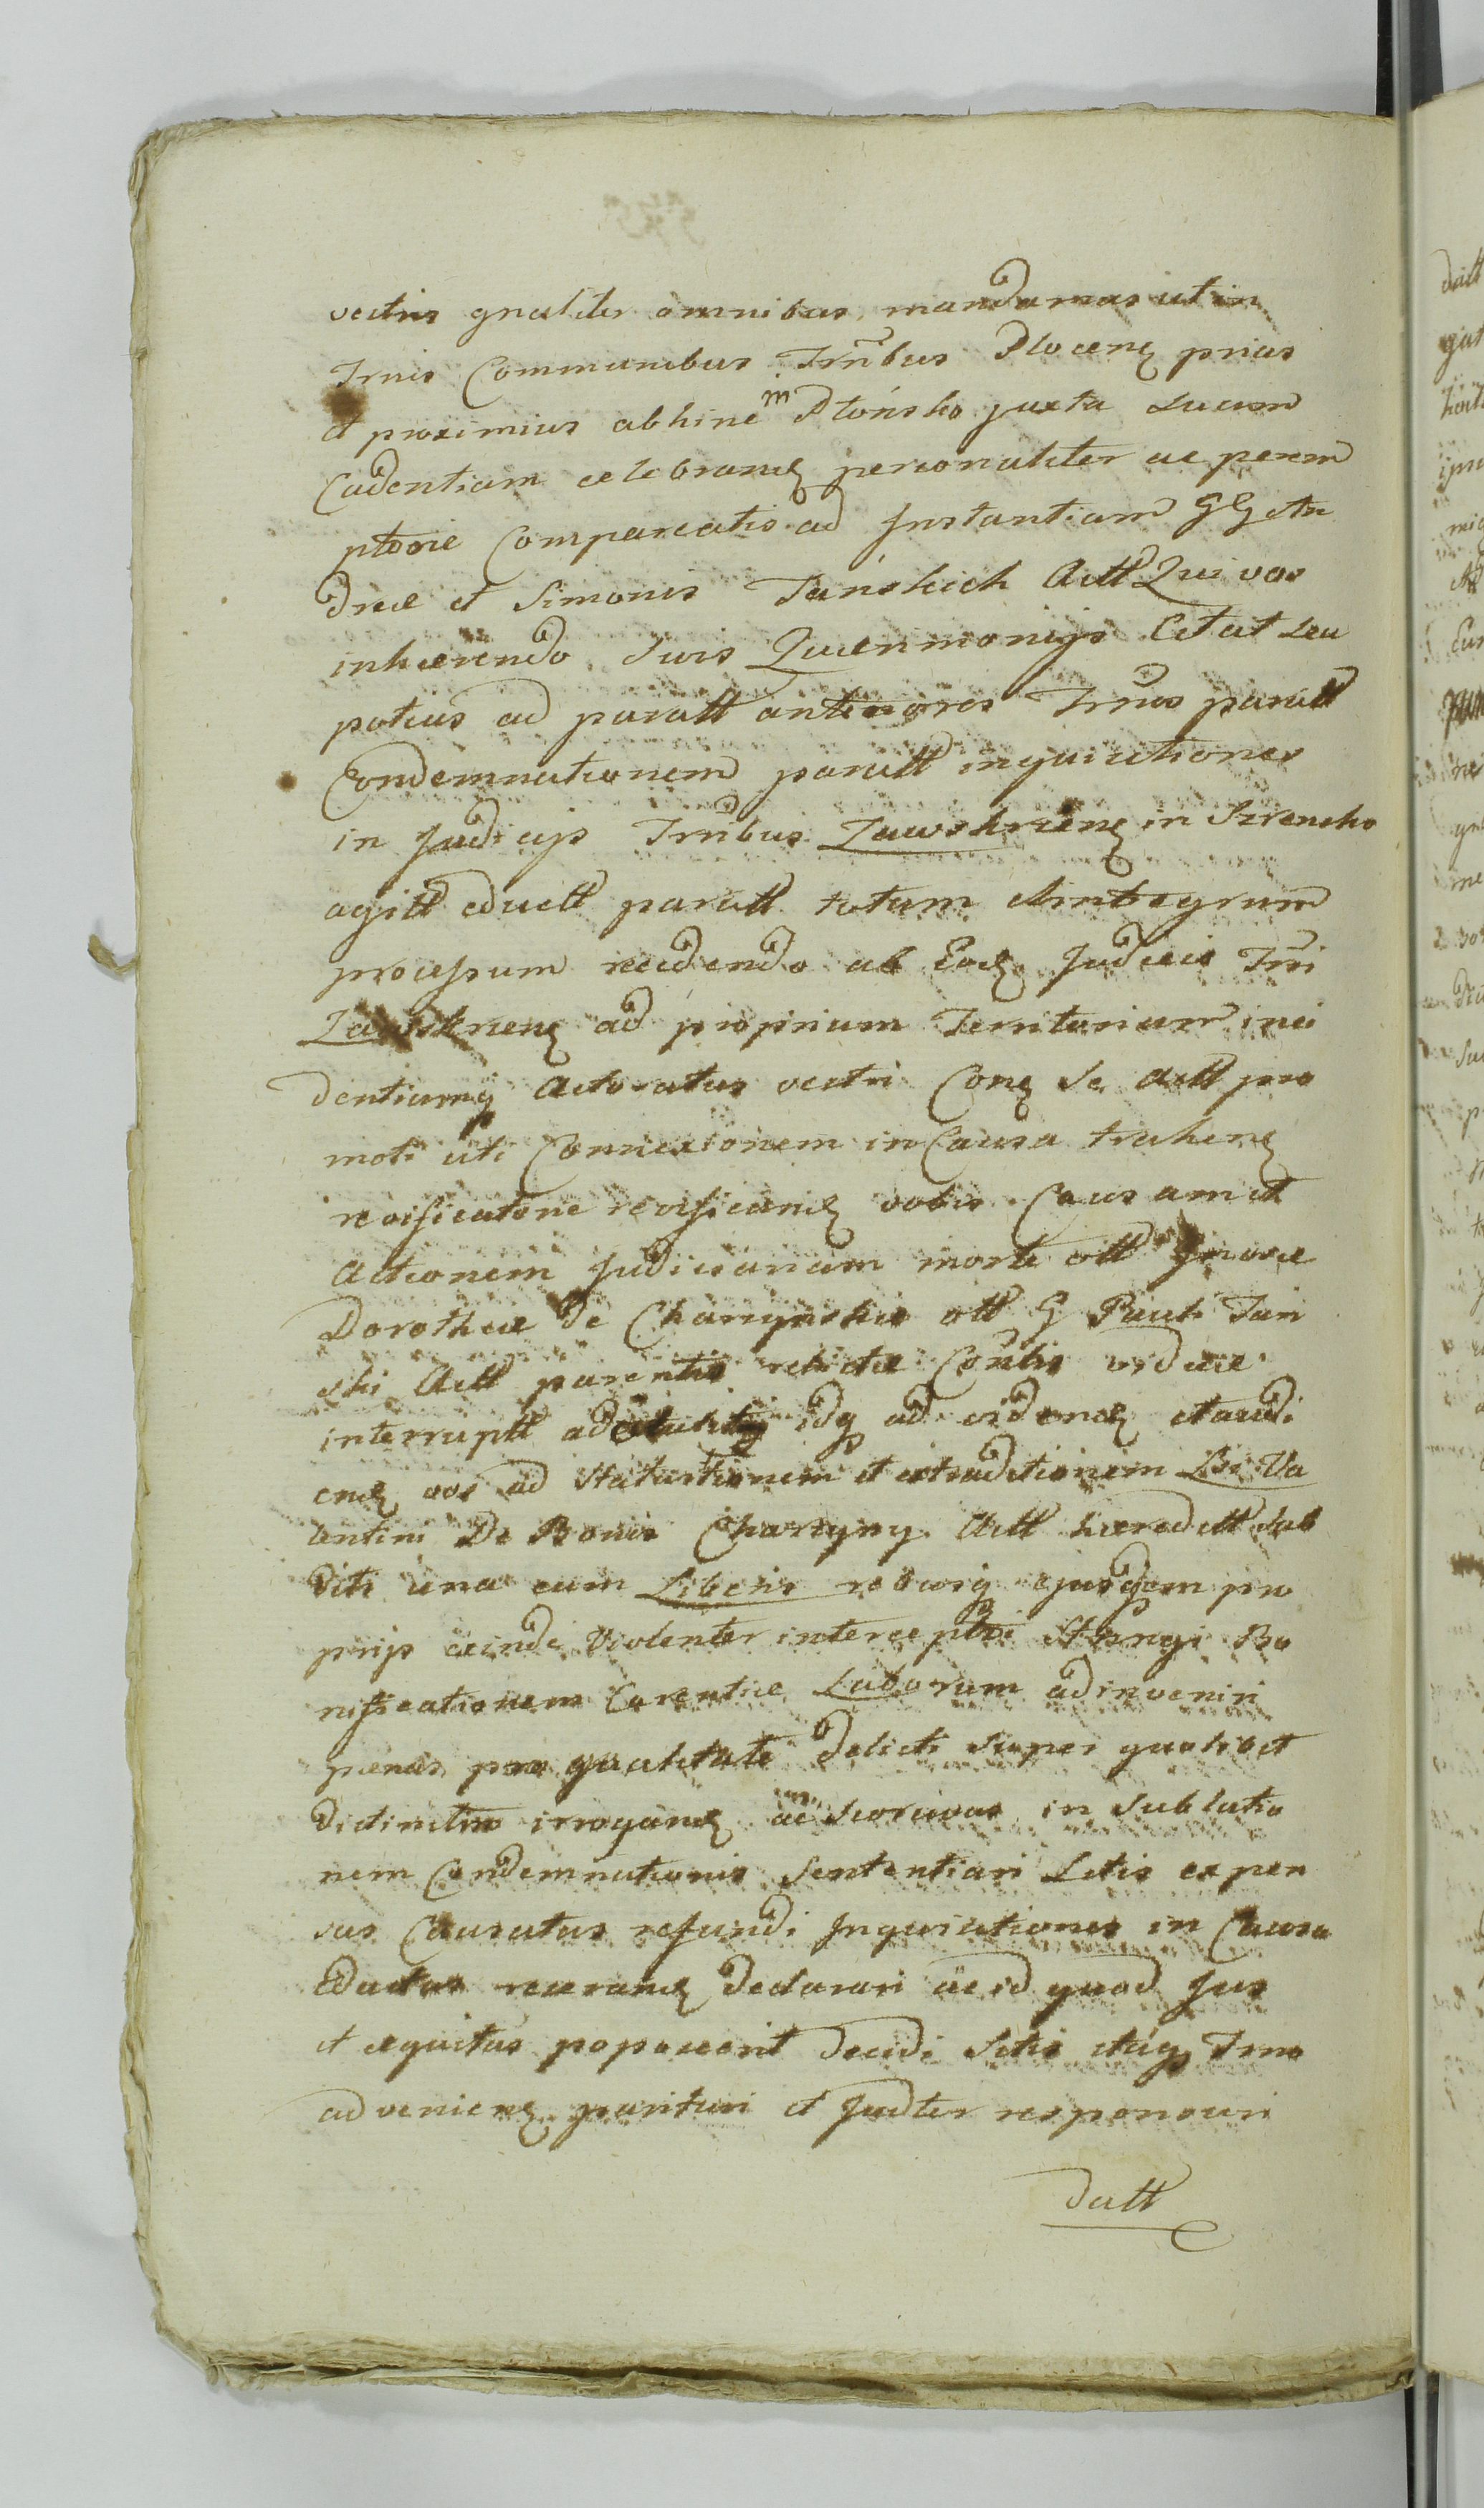 vestris gnaliter omnibus, mandamus ut in
Trnis Communibus Trribus Plocen prius
et proximius abhinc in Płońsko juxta suam
Cadentiam celebrand personaliter ac perem
ptorie Compareatis ad Instantiam GG An
dreæ et Simonis Tańskich Actt Qui vos
inhærendo suis Quærimonijs Citat seu
potius ad paratt anteriores Trnos paratt
Condemnationem paratt inquisitiones
in Judicijs Trribus Zawskrien in Szrensko
agitt eductt paratt totum et integrum
processum recedendo ab Eod Judicio Trri
Zawskrien ad proprium Territorium inci
dentiamq Actoratus vestri Con se Actt pro
moti uti Connexionem in Causa trahen
reassumend vobis Causam et
Actionem Judiciariam morte ott Gnosæ
Dorotheæ de Charzynskie ott G Pauli Tań
ski Actt parentis relictæ Conslis viduæ
interruptt idq ad vidend et audi
end vos ad Statutionem et extraditionem Lsi Va
lentini De Bonis Charzyny Actt hæreditt sub
diti una cum Liberis rebusq ejusdem pro
prijs exinde Violenter intercepti Astringi Bo
nificationem Carentiæ Laborum adinveniri
pænas pro qualitate delicti super quolibet
distinctim irrogand in Sublatio
nem Condemnationis Sententiari Litis expen
sas Causatas refundi Inquisitiones in Causa
Eductas declarari ac id quod Jus
et æquitas poposcerit decidi Sitis itaq Trno
advenien parituri et Judter responsuri
datt